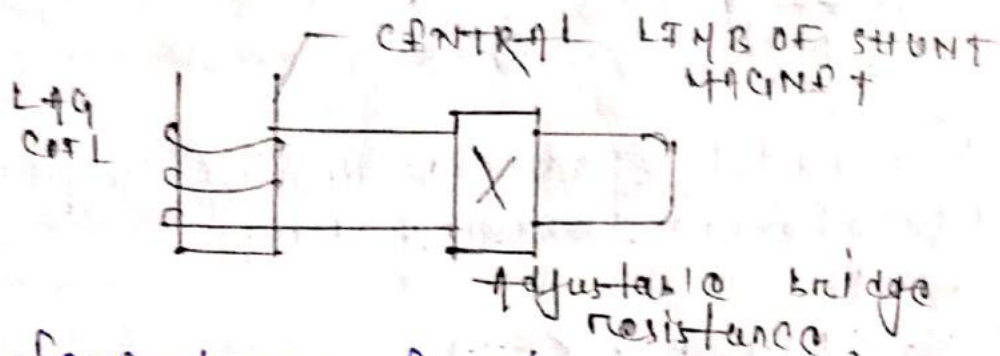 CENTRAL LIMB OF SHUNT
MAGNET
LAG
COIL
X
Adjustable bridge
resistance